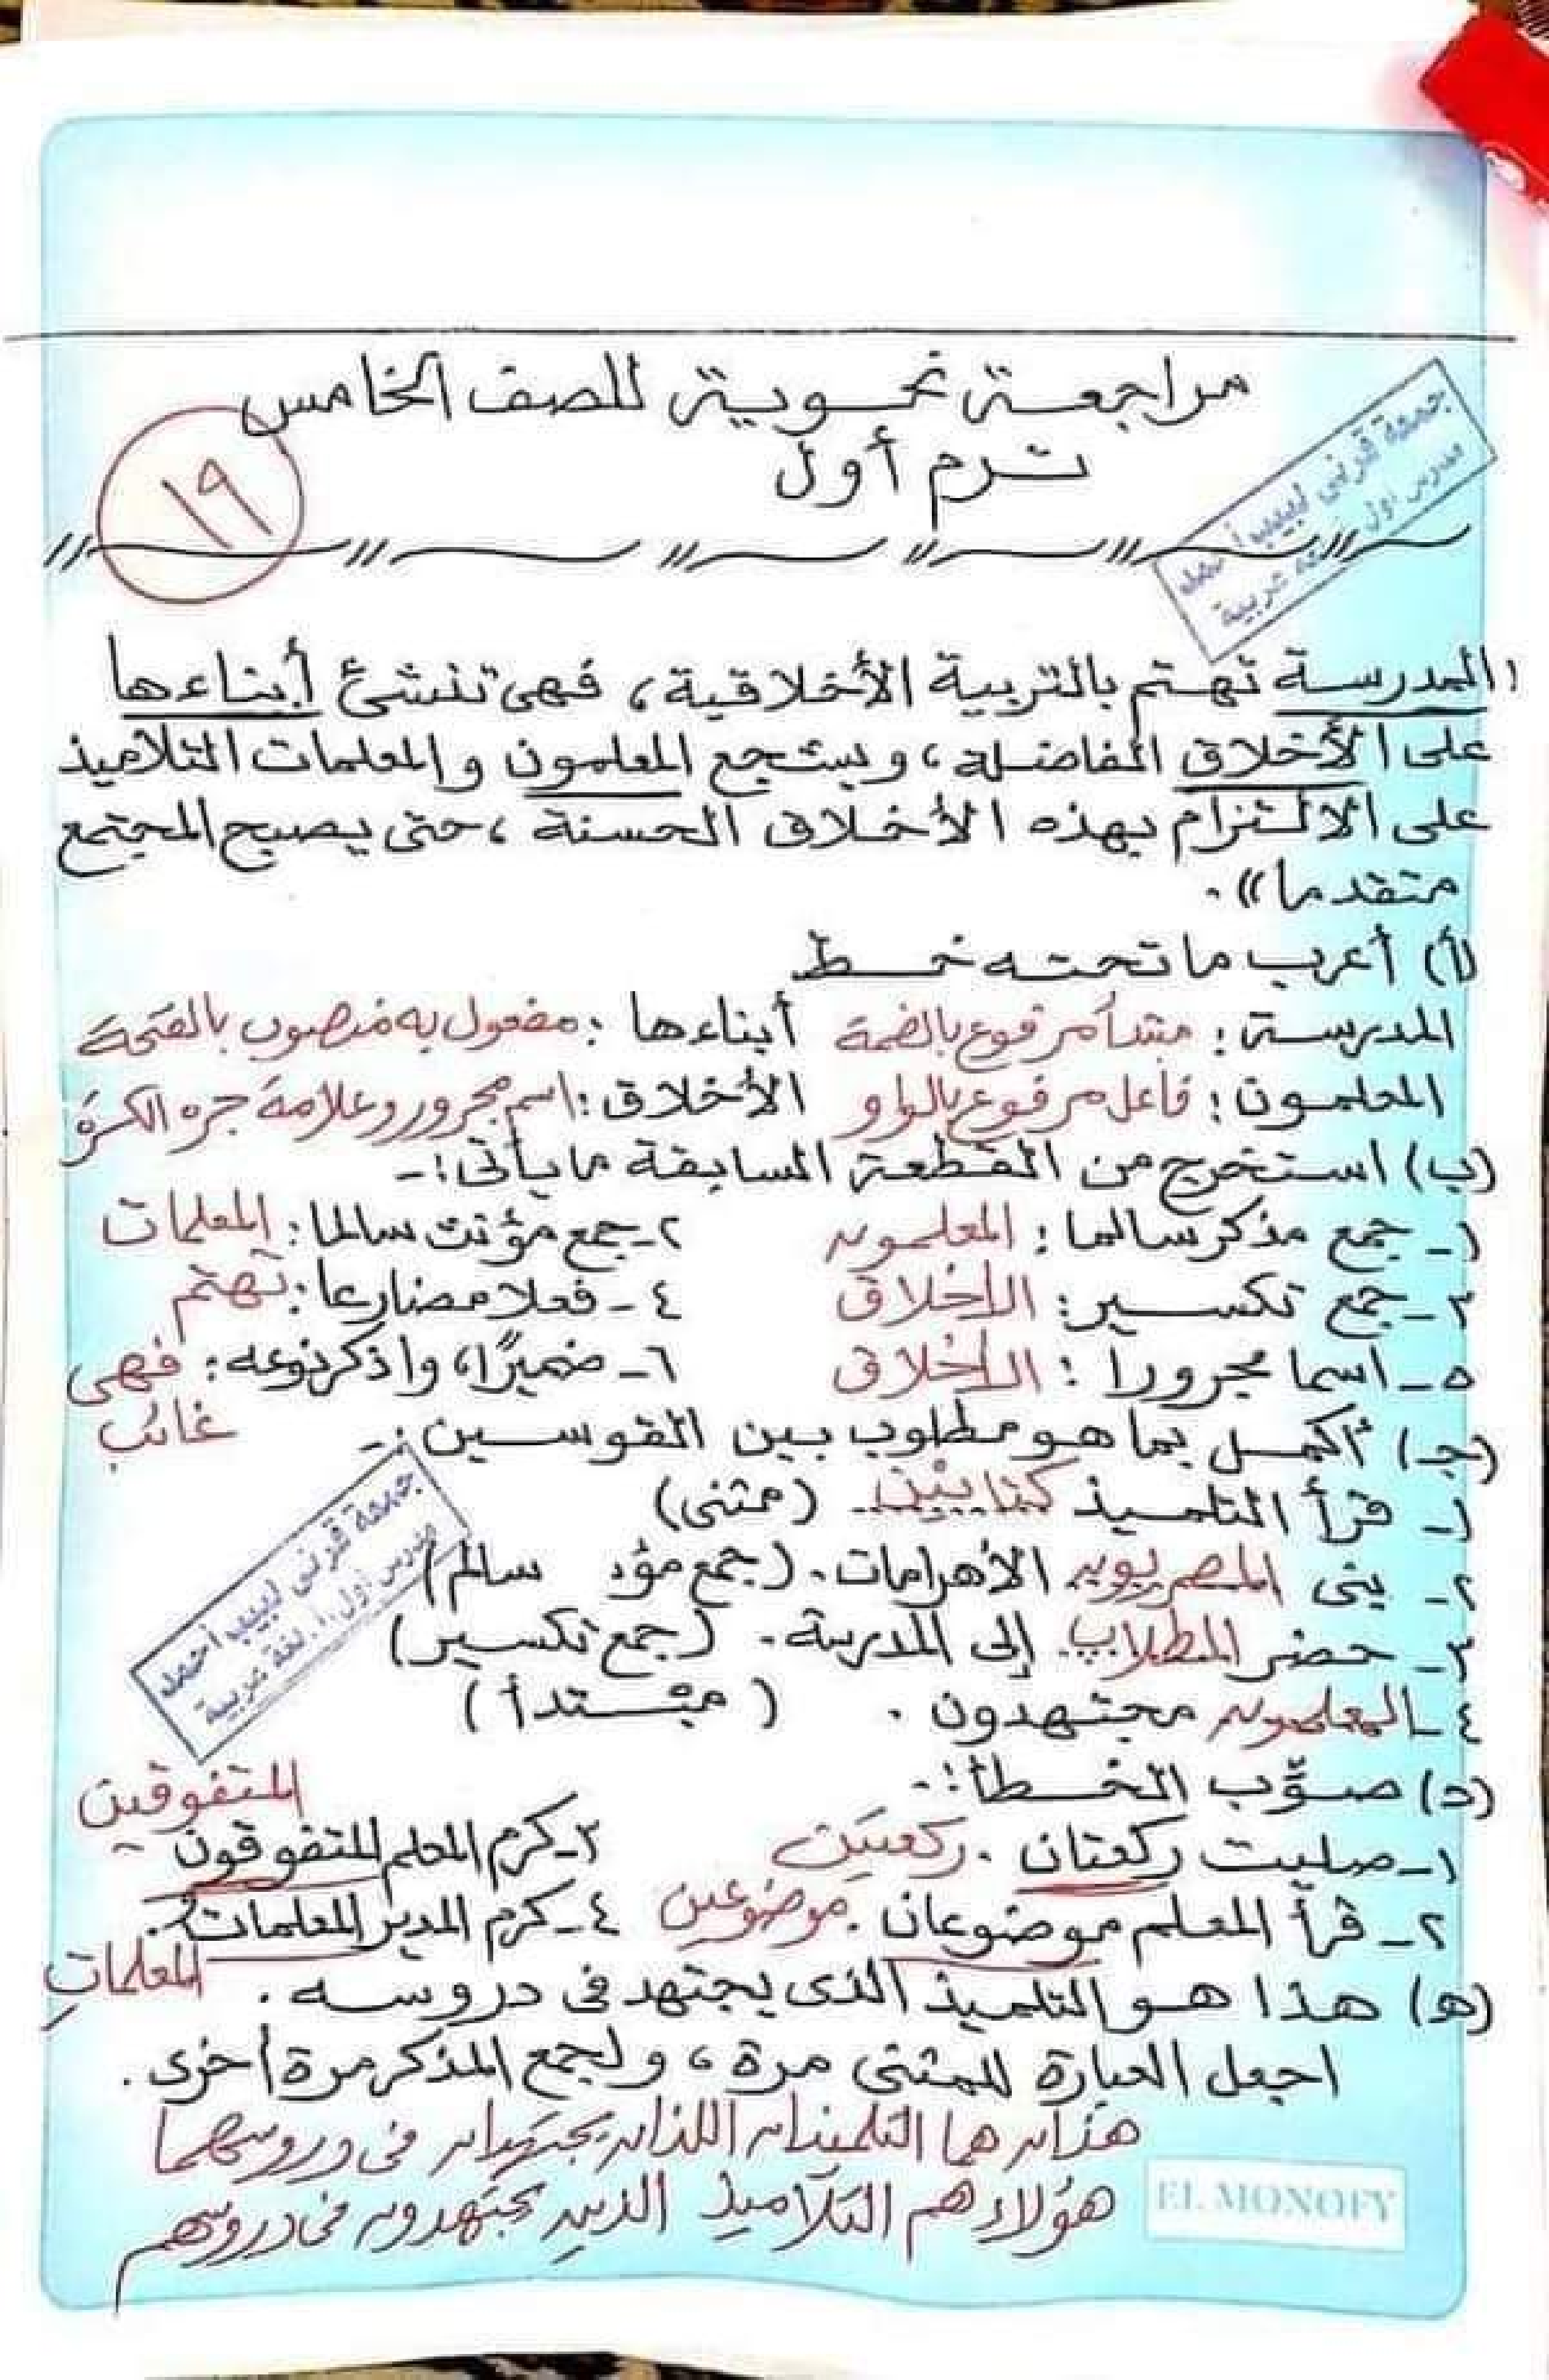 مراجعة نحوية للصف الخامس
ترم أول
١٩
جمعة قرنى لبيب أحمد
مدرس أول أ. لغة عربية
المدرسة تهتم بالتربية الأخلاقية، فهى تنشئ أبناءها
على الأخلاق الفاضلة، ويشجع المعلمون والمعلمات التلاميذ
على الالتزام بهذه الأخلاق الحسنة، حتى يصبح المجتمع
متقدما».
(أ) أعرب ما تحته خط
المدرسة: مبتدأ مرفوع بالضمة أبناءها: مفعول به منصوب بالفتحة
المعلمون: فاعل مرفوع بالواو الأخلاق: اسم مجرور وعلامة جره الكسرة
(ب) استخرج من القطعة السابقة ما يأتى:-
١- جمع مذكر سالما: المعلمون ٢- جمع مؤنث سالما: المعلمات
٣- جمع تكسير: الأخلاق ٤- فعلا مضارعا: تهتم
٥- اسما مجرورا: الأخلاق ٦- ضميرًا، واذكر نوعه: فهى
غائب
(ج) أكمل بما هو مطلوب بين القوسين:-
١- قرأ التلميذ كتابين. (مثنى)
٢- بنى المصريون الأهرامات. (جمع سالم)
٣- حضر الطلاب إلى المدرسة. (جمع تكسير)
٤- المعلمون مجتهدون. (مبتدأ)
جمعة قرنى لبيب أحمد
مدرس أول أ. لغة عربية
(د) صوِّب الخطأ:-
المتفوقين
١- صليت ركعتان. ركعتين ٣- كرم المعلم المتفوقون
٢- قرأ المعلم موضوعان. موضوعين ٤- كرم المدير المعلمات.
المعلماتِ
(ه) هذا هو التلميذ الذى يجتهد فى دروسه.
اجعل العبارة للمثنى مرة، ولجمع المذكر مرة أخرى.
هذان هما التلميذان اللذان يجتهدان فى دروسهما
هؤلاء هم التلاميذ الذين يجتهدون فى دروسهم
EL MONOFY